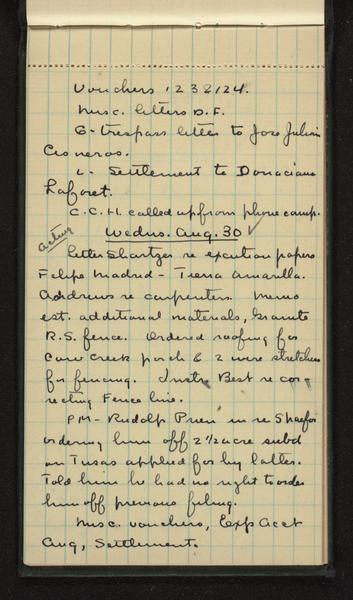 Vouchers 123 & 124.
Misc. letters D.F.
G - trespass letter to Jose Julian
Cisneros.
L - Settlement to Donaciano
Laforet.
C.C.H. called up from phone camp.
Acting
Wednes. Aug. 30
Letter Shartzer re excution papers
Felipe Madrid - Tierra Amarilla.
Andrews re carpenters. Memo
est. additional materials, Granite
R.S. fence. Ordered roofing for
Cow Creek porch & 2 wire stretchers
for fencing. Instr. Best re cor-
recting Fence line.
PM - Rudolf in re Shaefor
ordering him off 2 1/2 acre subd
on Tusas applied for by latter.
Told him he had no right to order
him off previous filing.
Misc. vouchers, Exp Acct
Aug, Settlement.